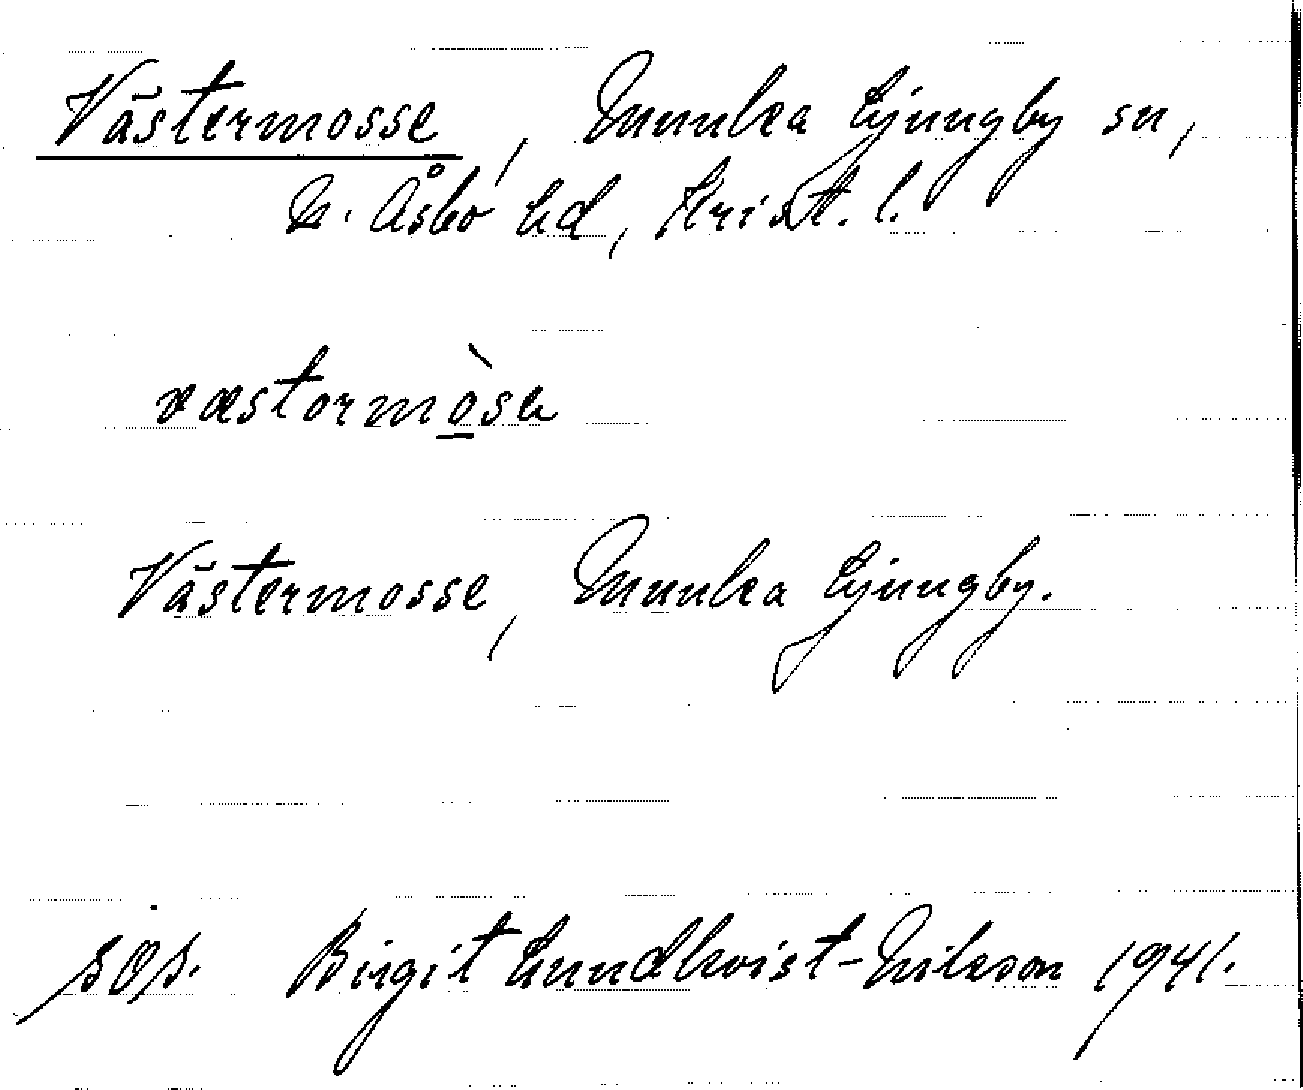 Västermosse, Munka Ljungby sn,
N. Åsbo hd, Krist. l.
væstormòsa
Västermosse, Munka Ljungby.
Birgit Lundkvist-Nilsson 1941.